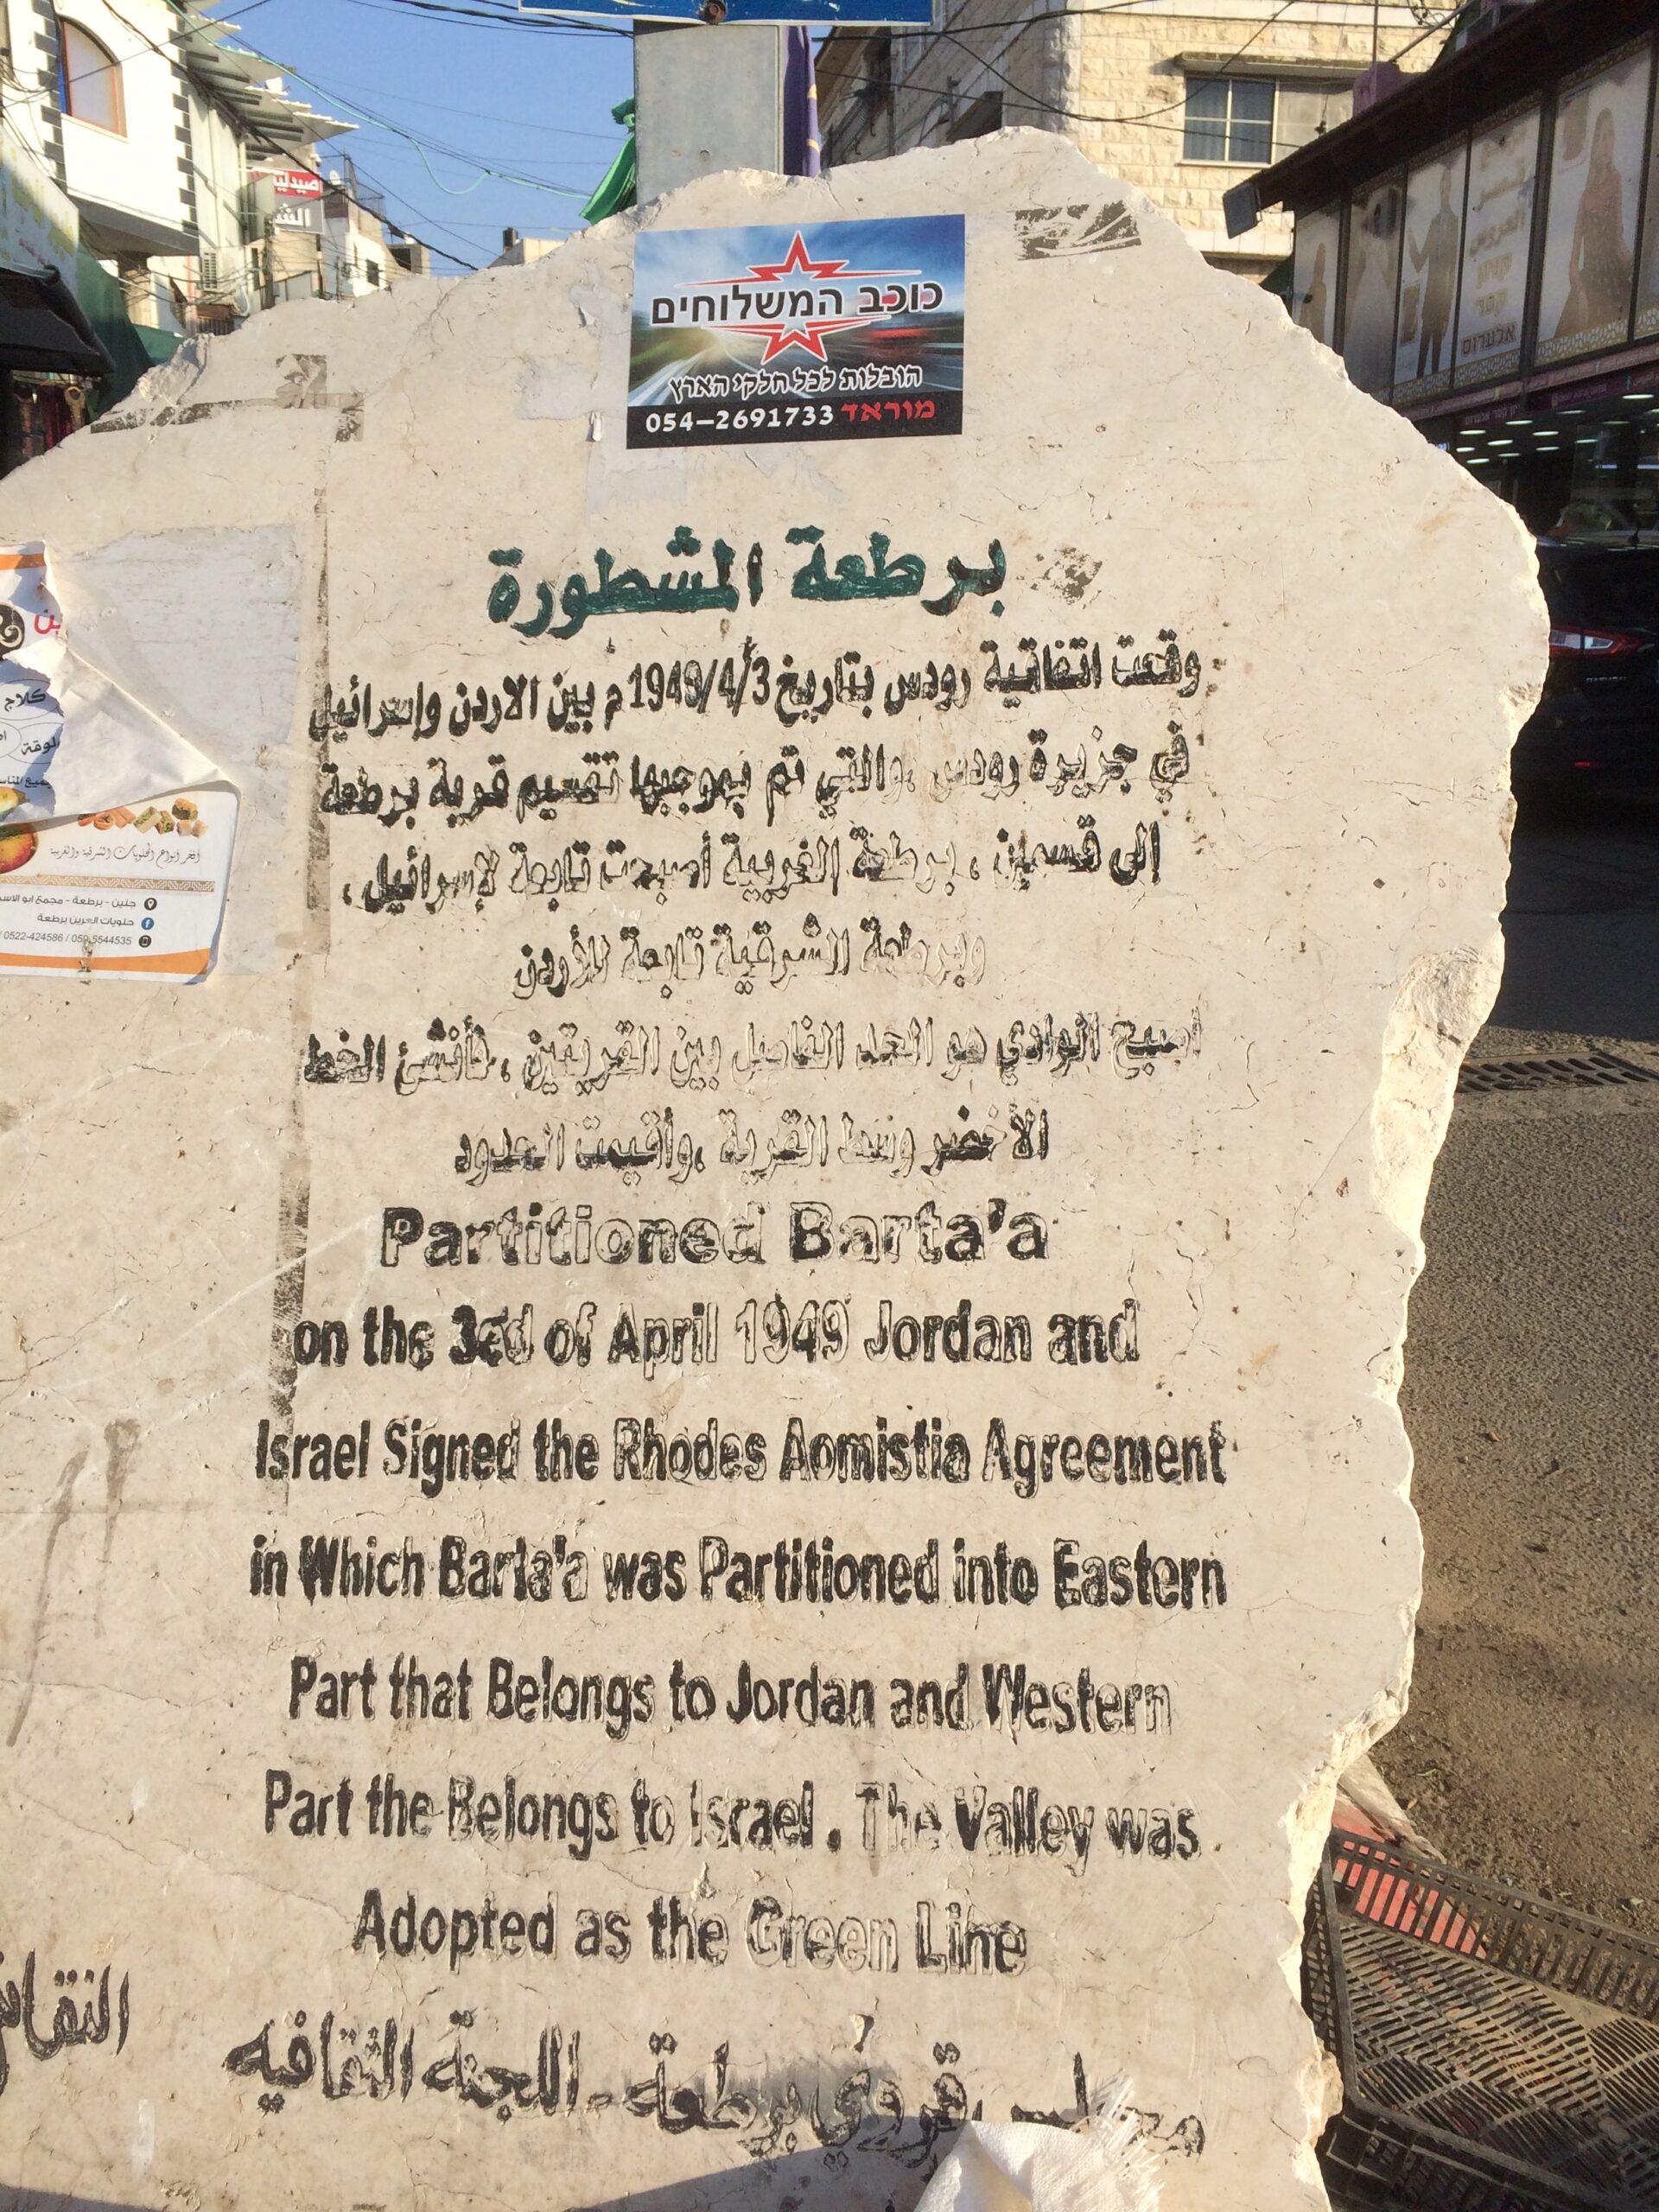 صيدلية
כוכב המשלוחים
הובלות לכל חלקי הארץ
054-2691733 מוראד
אלערוס
برطعة المشطورة
وقعت اتفاقية رودس بتاريخ 1949/4/3 م بين الاردن وإسرائيل
في جزيرة رودس ،والتي تم بموجبها تقسيم قرية برطعة
إلى قسمين ، برطعة الغربية أصبحت تابعة لإسرائيل ،
وبرطعة الشرقية تابعة للأردن
اصبح الوادي هو الحد الفاصل بين القريتين ، فأنشئ الخط
الأخضر وسط القرية ،وأقيمت الحدود
Partitioned Barta'a
on the 3ed of April 1949 Jordan and
Israel Signed the Rhodes Aomistia Agreement
in Which Barta'a was Partitioned into Eastern
Part that Belongs to Jordan and Western
Part the Belongs to Israel . The Valley was
Adopted as the Green Line
مجلس قروي برطعة - اللجنة الثقافيه
كلاج
أفخر أنواع الحلويات الشرقية والغربية
جنين - برطعة - مجمع ابو الاس
حلويات العرين برطعة
0522-424586 / 059-5544535